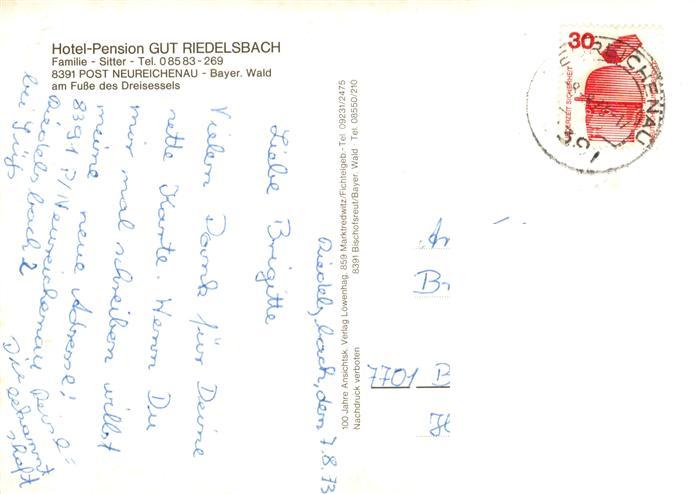 Hotel-Pension GUT RIEDELSBACH
Familie - Sitter - Tel. 08583-269
8391 POST NEUREICHENAU - Bayer. Wald
am Fuße des Dreisessels
Riedelsbach, dem 7.8.73
Liebe Brigitte
Vielem Dank für Deine
nette Karte. Wenn Du
mir mal schreiben willst
meine neue Adresse:
8391 P/Neureichenau
Riedelsbach 2
100 Jahre Ansichtsk. Verlag Löwenhag, 859 Marktredwitz/Fichtelgeb · Tel. 09231/2475
8391 Bischofsreut/Bayer. Wald · Tel. 08550/210
Nachdruck verboten
30
JEDERZEIT SICHERHEIT
REICHENAU
An
Br
7701 B
H